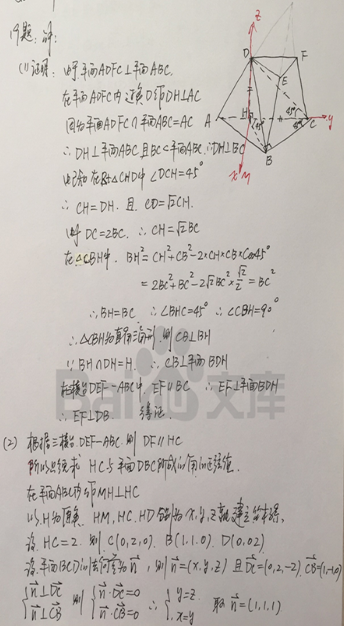 19题: 解:
(1)证明: 由于平面ADFC⊥平面ABC.
在平面ADFC内过点D作DH⊥AC
因为平面ADFC∩平面ABC=AC
∴ DH⊥平面ABC 且BC⊂平面ABC. ∴DH⊥BC
在Rt△CHD中 ∠DCH=45°
∴ CH=DH. 且 CD=√2CH.
DC=2BC. ∴ CH=√2BC
在△CBH中. BH²=CH²+CB²-2×CH×CB×Cos45°
=2BC²+BC²-2√2BC²×√2/2=BC²
∴BH=BC ∴∠BHC=45° ∴∠CBH=90°
∴△CBH为直角三角形. 则CB⊥BH
∵BH∩DH=H. ∴CB⊥平面BDH
在棱台DEF-ABC中. EF∥BC ∴EF⊥平面BDH
∴EF⊥DB. 得证.
(2) 根据三棱台DEF-ABC. 则 DF∥HC
所以只须求 HC与平面DBC所成的角的正弦值.
在平面ABC内作MH⊥HC
以H为原点. HM, HC, HD分别为x,y,z轴建立坐标系,
设HC=2. 则C(0,2,0). B(1,1,0). D(0,0,2)
设平面BCD的法向量为n, 则n=(x,y,z) 且DC=(0,2,-2). CB=(1,-1,0)
{n⊥DC 则 {n·DC=0 ∴ {y=z. 取n=(1,1,1)
{n⊥CB {n·CB=0 {x=y
z
D
F
E
A
H
45°
45°
C
y
B
x
M
Bai 文库